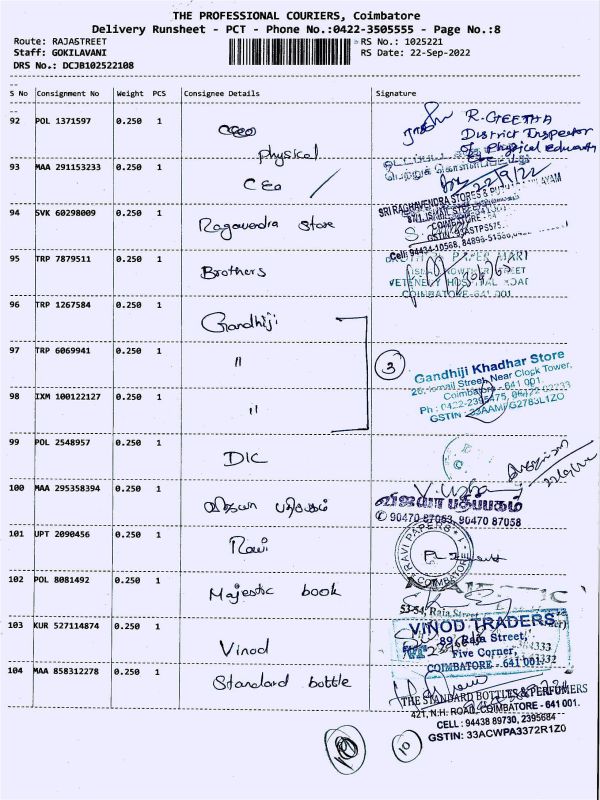 THE PROFESSIONAL COURIERS, Coimbatore
Delivery Runsheet - PCT - Phone No.:0422-3505555 - Page No.:8
Route: RAJASTREET
RS No.: 1025221
Staff: GOKILAVANI
RS Date: 22-Sep-2022
DRS No.: DCJB102522108
S No Consignment No Weight PCS Consignee Details Signature
92 POL 1371597 0.250 1 CEO Physical
R. GEETHA
District Inspector
of Physical education
93 MAA 291153233 0.250 1 CEO
22/9/22
94 SVK 60298009 0.250 1 Ragavendra Store
SRI RAGHAVENDRA STORES
COIMBATORE
95 TRP 7879511 0.250 1 Brothers
PAPER MART
STREET
COIMBATORE-641 001.
96 TRP 1267584 0.250 1 Gandhiji
97 TRP 6069941 0.250 1 "
3
Gandhiji Khadhar Store
26, Ismail Street, Near Clock Tower,
Coimbatore - 641 001.
98 IXM 100122127 0.250 1 "
99 POL 2548957 0.250 1 DIC
100 MAA 295358394 0.250 1 விஜயா பதிப்பகம்
விஜயா பதிப்பகம்
90470 87053, 90470 87058
101 UPT 2090456 0.250 1 Ravi
RAVI PAPERS
COIMBATORE
102 POL 8081492 0.250 1 Majestic book
53-54, Raja Street
103 KUR 527114874 0.250 1 Vinod
VINOD TRADERS
89, Raja Street,
Five Corner,
COIMBATORE - 641 001
104 MAA 858312278 0.250 1 Standard bottle
THE STANDARD BOTTLES & PERFUMERS
421, N.H. ROAD, COIMBATORE - 641 001.
CELL : 94438 89730, 2395684
GSTIN: 33ACWPA3372R1Z0
10
10